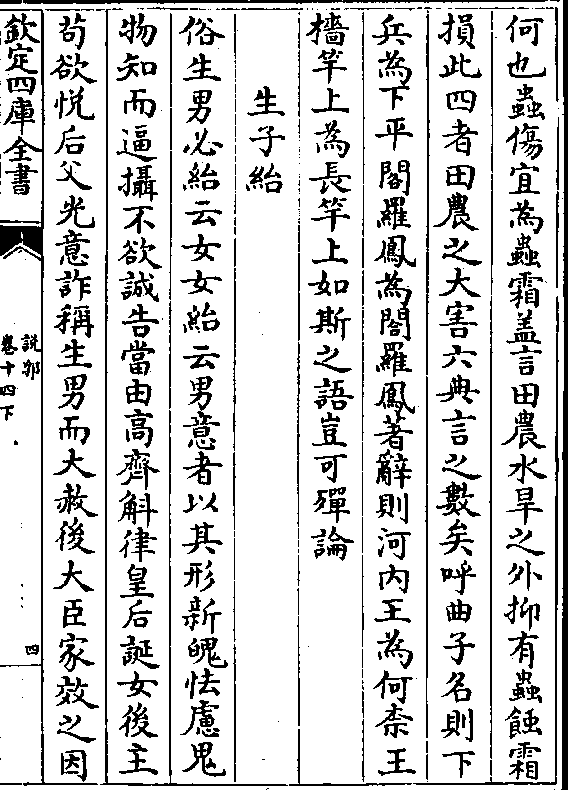 何也蟲傷宜為蟲霜盖言田農水旱之外抑有蟲蝕霜
損此四者田農之大害六典言之數矣呼曲子名則下
兵為下平閤羅鳳為閣羅鳳著辭則河内王為何柰王
檣竿上為長竿上如斯之語豈可殫論
生子紿
俗生男必紿云女女紿云男意者以其形新魄怯慮鬼
物知而逼攝不欲誠告當由高齊斛律皇后誕女後主
苟欲悦后父光意詐稱生男而大赦後大臣家效之因
欽定四庫全書
說郛
卷十四下
四